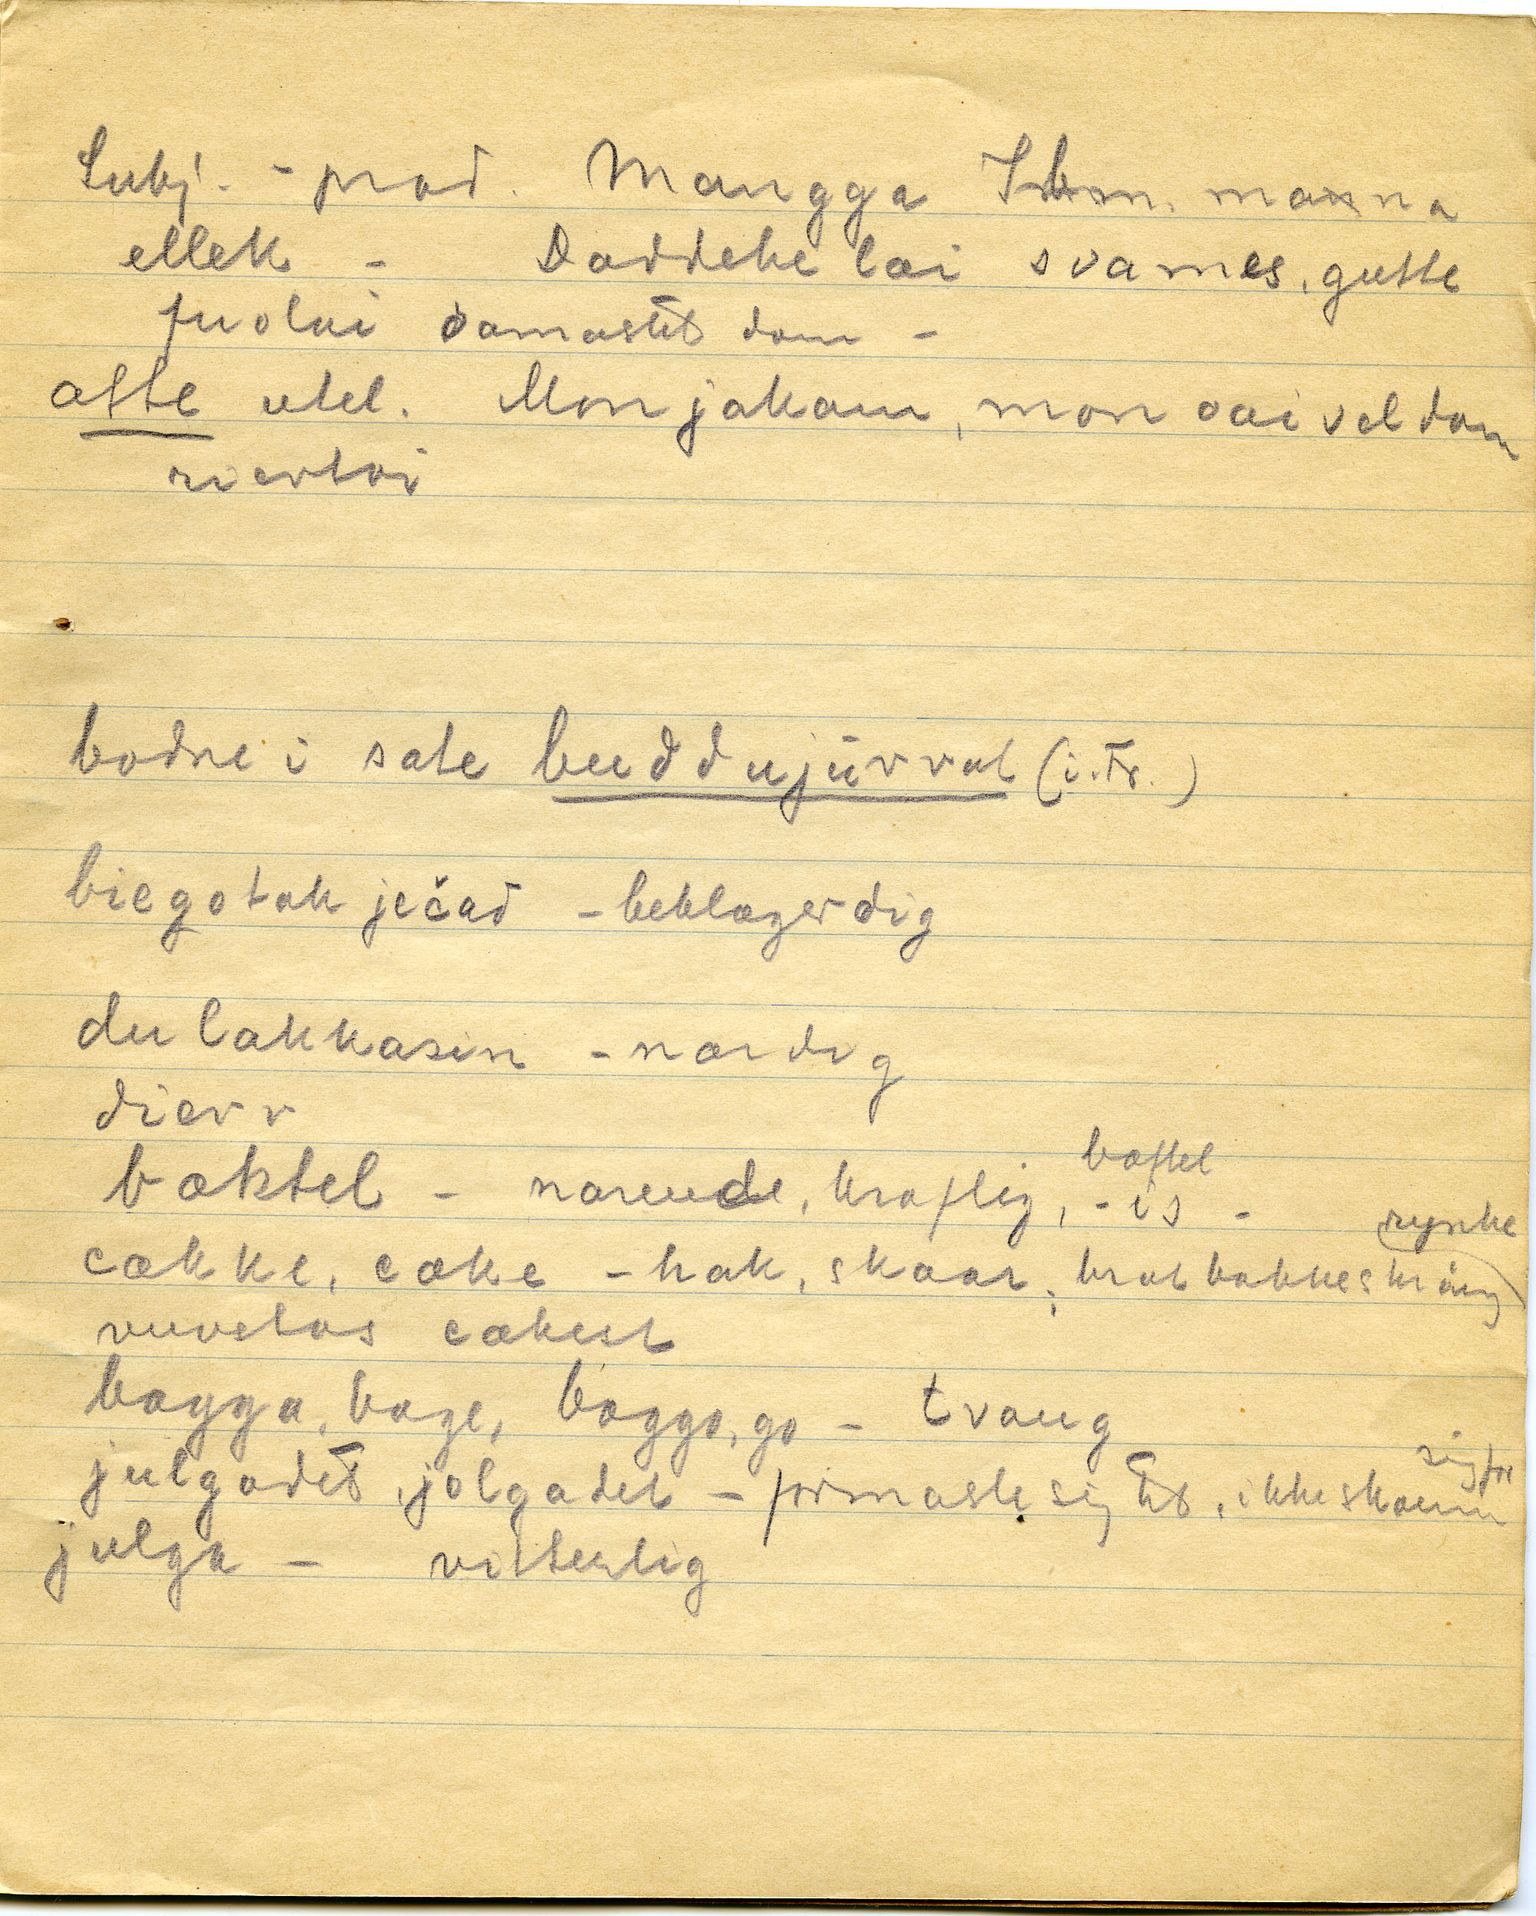 Subj. - præd. Mangga Ibm. manna
ellek - Daddeke læi svames, gutte
fuolai damastet dam -
atte utel. Mon jakam, mon oaiveldam
riertoi
bodne i sate buđđujúvvut (i. Fr.)
biegotak ječad - beklager dig
du lakkasin - nær dig
dierv
bæktel - nærende, kraftig, bæftel - is -
cække, cæke - hak, skaar, brat bakkeskrång rynke
vuvetas cækest
bagga, bage, baggo, go - tvang
julgadet, jolgadet - förmaste sig til, ikke skamme sig for
julga - vitterlig